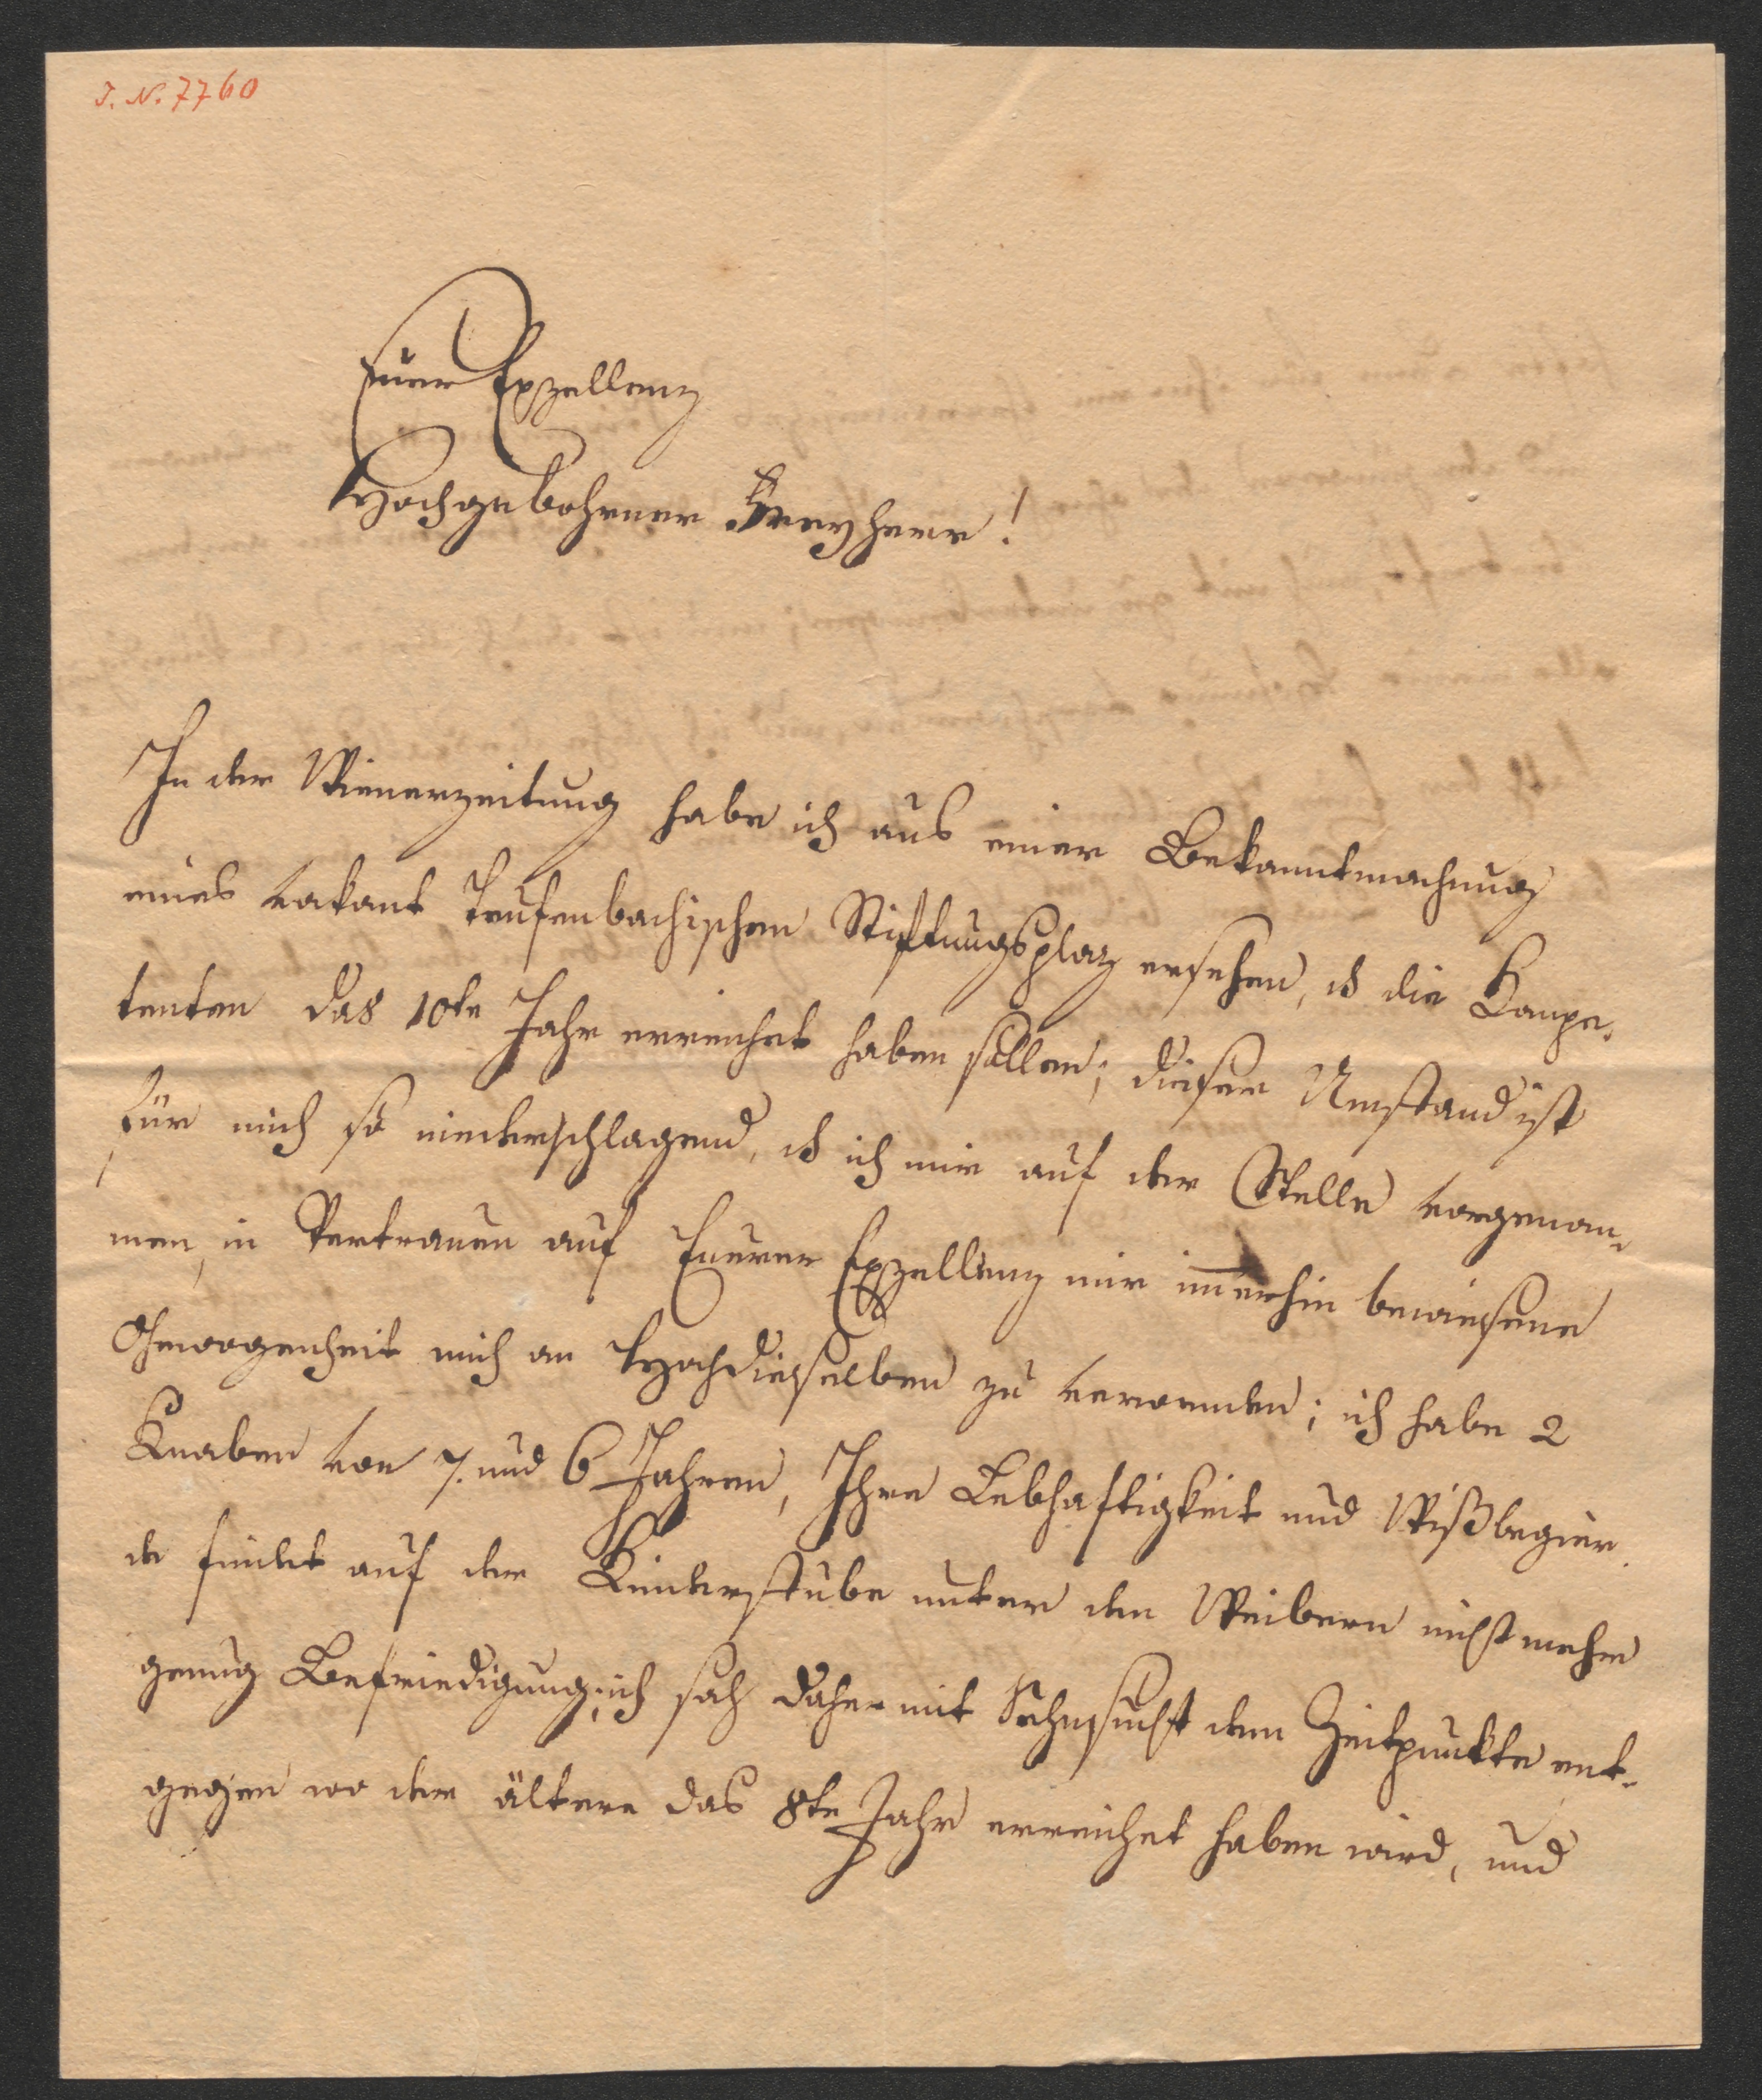 I. N. 7760
Euer Exzellenz
Hochgebohrner Freyherr!
In der Wienerzeitung habe ich aus einer Bekanntmachung
eines vakant Teufenbachischen Stiftungsplaz ersehen, dß die Kompe-
tenten das 10te Jahr erreichet haben sollen; dieser Umstand ist
für mich so niederschlagend, dß ich mir auf der Stelle vorgenom-
men, in Vertrauen auf Euerer Exzellenz mir im̅erhin bewiesene
Gewogenheit mich an Hochdieselben zu verwenden; ich habe 2
Knaben von 7. und 6 Jahren, Ihre Lebhaftigkeit und Wißbegier
de findet auf der Kinderstube unter den Weibern nicht mehr
genug Befriedigung; ich sah daher mit Sehnsucht dem Zeitpunkte ent-
gegen wo der ältere das 8te Jahr erreichet haben wird, und